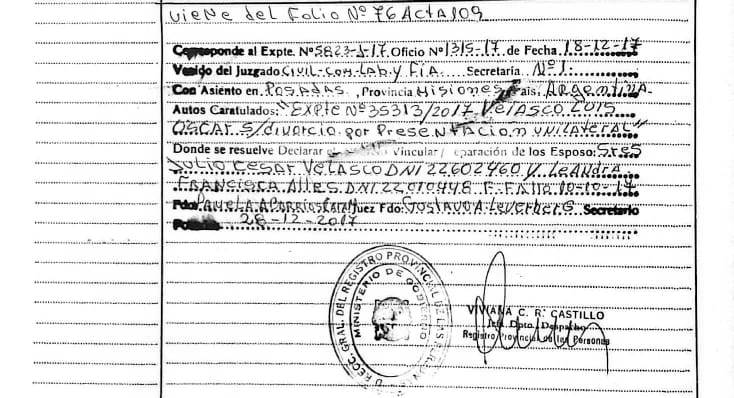 viene del Folio Nº 76 Acta 109
Corresponde al Expte. Nº 5823-J-17 Oficio Nº 1315-17 de Fecha 18-12-17
Venido del Juzgado CIVIL-COM-LAB. y FIA.... Secretaría Nº 1.
Con Asiento en POSADAS., Provincia MISIONES País: ARGENTINA.
Autos Caratulados: "EXpte Nº 35313/2017 VELASCO LUIS
OSCAR S/divorcio por PresENTACION UNILATERAL"
Donde se resuelve Declarar el Vincular/ eparación de los Esposo: Sres
Julio CESAR VELASCO DNI 22602460 y LeANdrA
FRANCISCA DNI 22010448 F. FAllo 10-10-17
Fdo: PAMELA Juez Fdo: GOSTAVO A. Leverberg. Secretario
28-12-2017
DIRECC. GRAL. DEL REGISTRO PROVINCIAL DE LAS PERSONAS
MINISTERIO DE GOBIERNO
VIVIANA C. R. CASTILLO
Jefa Dpto. Despacho
Registro Provincial de las Personas